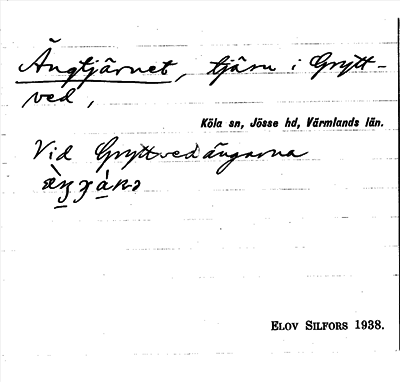 Ängtjärnet, tjärn i Grytt-
ved,
Köla sn, Jösse hd, Värmlands län.
Vid Gryttvedängarna
ELOV SILFORS 1938.